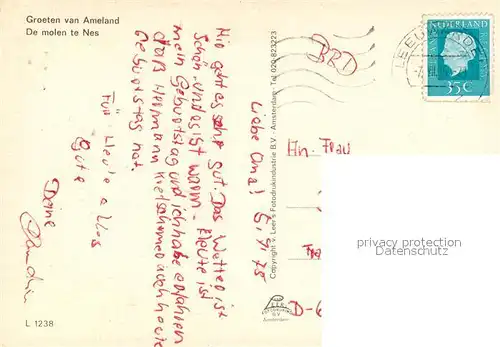 Groeten van Ameland
De molen te Nes
L 1238
Liebe Oma!
Mir geht es sehr gut. Das Wetter ist
schön und es ist warm. Heute ist
mein Geburtstag und ich habe erfahren
daß Hermann auch heute
Geburtstag hat.
Für Heute alles
Gute
Deine
Copyright v. Leer's Fotodrukindustrie B.V. - Amsterdam - Tel 020-823223
BRD
An Frau
D-6
LEEUWARDEN
NEDERLAND
35c
FOTODRUKIND
B.V.
Amsterdam
privacy protection
Datenschutz